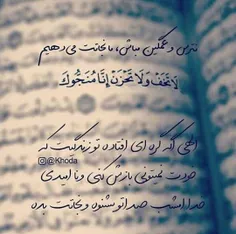 نترس و غمگین مباش، ما نجاتت می دهیم
لَا تَخَفْ وَلَا تَحْزَنْ إِنَّا مُنَجُّوكَ
الهی اگه گره ای افتاده تو زندگیت که
@Khoda
خودت نمیتونی بازش کنی و ناامیدی
خدا امشب صداتو بشنوه و نجاتت بده